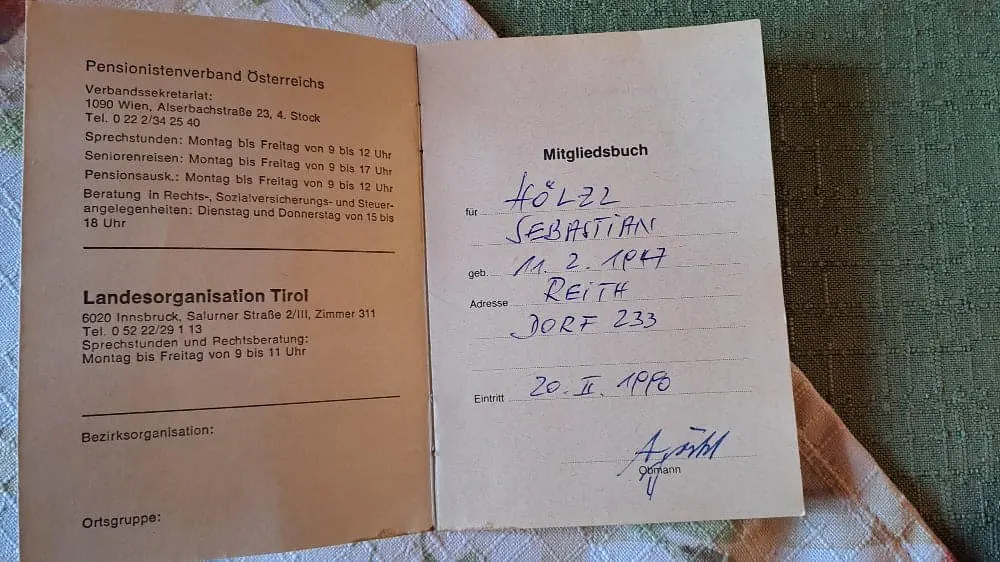 Pensionistenverband Österreichs
Verbandssekretariat:
1090 Wien, Alserbachstraße 23, 4. Stock
Tel. 0 22 2/34 25 40
Sprechstunden: Montag bis Freitag von 9 bis 12 Uhr
Seniorenreisen: Montag bis Freitag von 9 bis 17 Uhr
Pensionsausk.: Montag bis Freitag von 9 bis 12 Uhr
Beratung in Rechts-, Sozialversicherungs- und Steuer-
angelegenheiten: Dienstag und Donnerstag von 15 bis
18 Uhr
Landesorganisation Tirol
6020 Innsbruck, Salurner Straße 2/III, Zimmer 311
Tel. 0 52 22/29 1 13
Sprechstunden und Rechtsberatung:
Montag bis Freitag von 9 bis 11 Uhr
Bezirksorganisation:
Ortsgruppe:
Mitgliedsbuch
für HÖLZL
SEBASTIAN
geb. 11. 2. 1947
Adresse REITH
DORF 233
Eintritt 20. II. 1990
Obmann